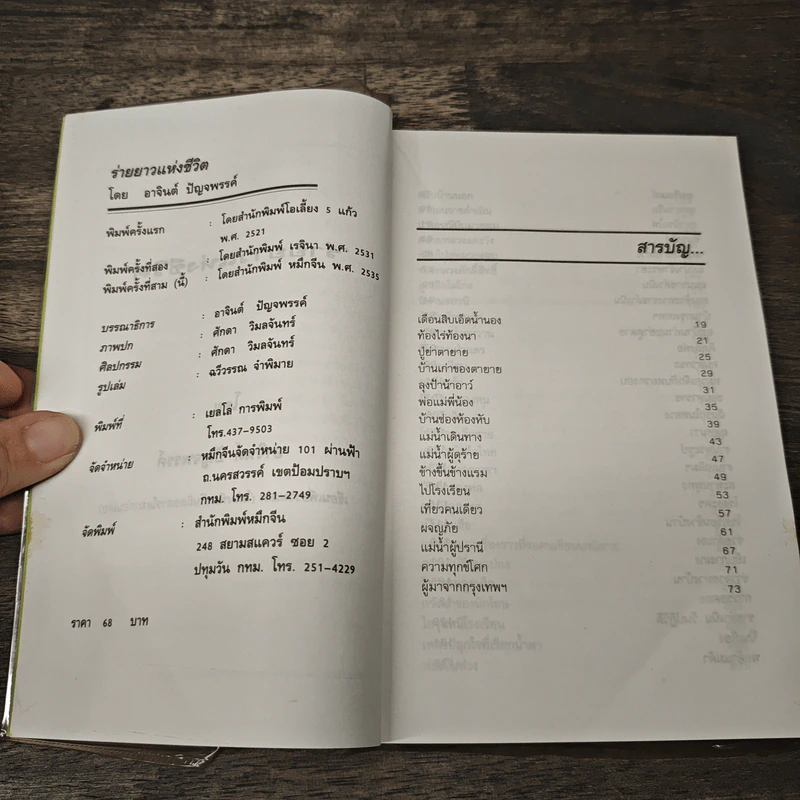 ร่ายยาวแห่งชีวิต
โดย อาจินต์ ปัญจพรรค์
พิมพ์ครั้งแรก : โดยสำนักพิมพ์โอเลี้ยง 5 แก้ว
พ.ศ. 2521
พิมพ์ครั้งที่สอง : โดยสำนักพิมพ์ เรจินา พ.ศ. 2531
พิมพ์ครั้งที่สาม (นี้) : โดยสำนักพิมพ์ หมึกจีน พ.ศ. 2535
บรรณาธิการ : อาจินต์ ปัญจพรรค์
ภาพปก : ศักดา วิมลจันทร์
ศิลปกรรม : ศักดา วิมลจันทร์
รูปเล่ม : ฉรีวรรณ จำพิมาย
พิมพ์ที่ : เยลโล่ การพิมพ์
โทร.437-9503
จัดจำหน่าย : หมึกจีนจัดจำหน่าย 101 ผ่านฟ้า
ถ.นครสวรรค์ เขตป้อมปราบฯ
กทม. โทร. 281-2749
จัดพิมพ์ : สำนักพิมพ์หมึกจีน
248 สยามสแควร์ ซอย 2
ปทุมวัน กทม. โทร. 251-4229
ราคา 68 บาท
สารบัญ...
เดือนสิบเอ็ดน้ำนอง 19
ท้องไร่ท้องนา 21
ปู่ย่าตายาย 25
บ้านเก่าของตายาย 29
ลุงป้าน้าอาว์ 31
พ่อแม่พี่น้อง 35
บ้านช่องห้องหับ 39
แม่น้ำเดินทาง 43
แม่น้ำผู้ดุร้าย 47
ข้างขึ้นข้างแรม 49
ไปโรงเรียน 53
เที่ยวคนเดียว 57
ผจญภัย 61
แม่น้ำผู้ปรานี 67
ความทุกข์โศก 71
ผู้มาจากกรุงเทพฯ 73